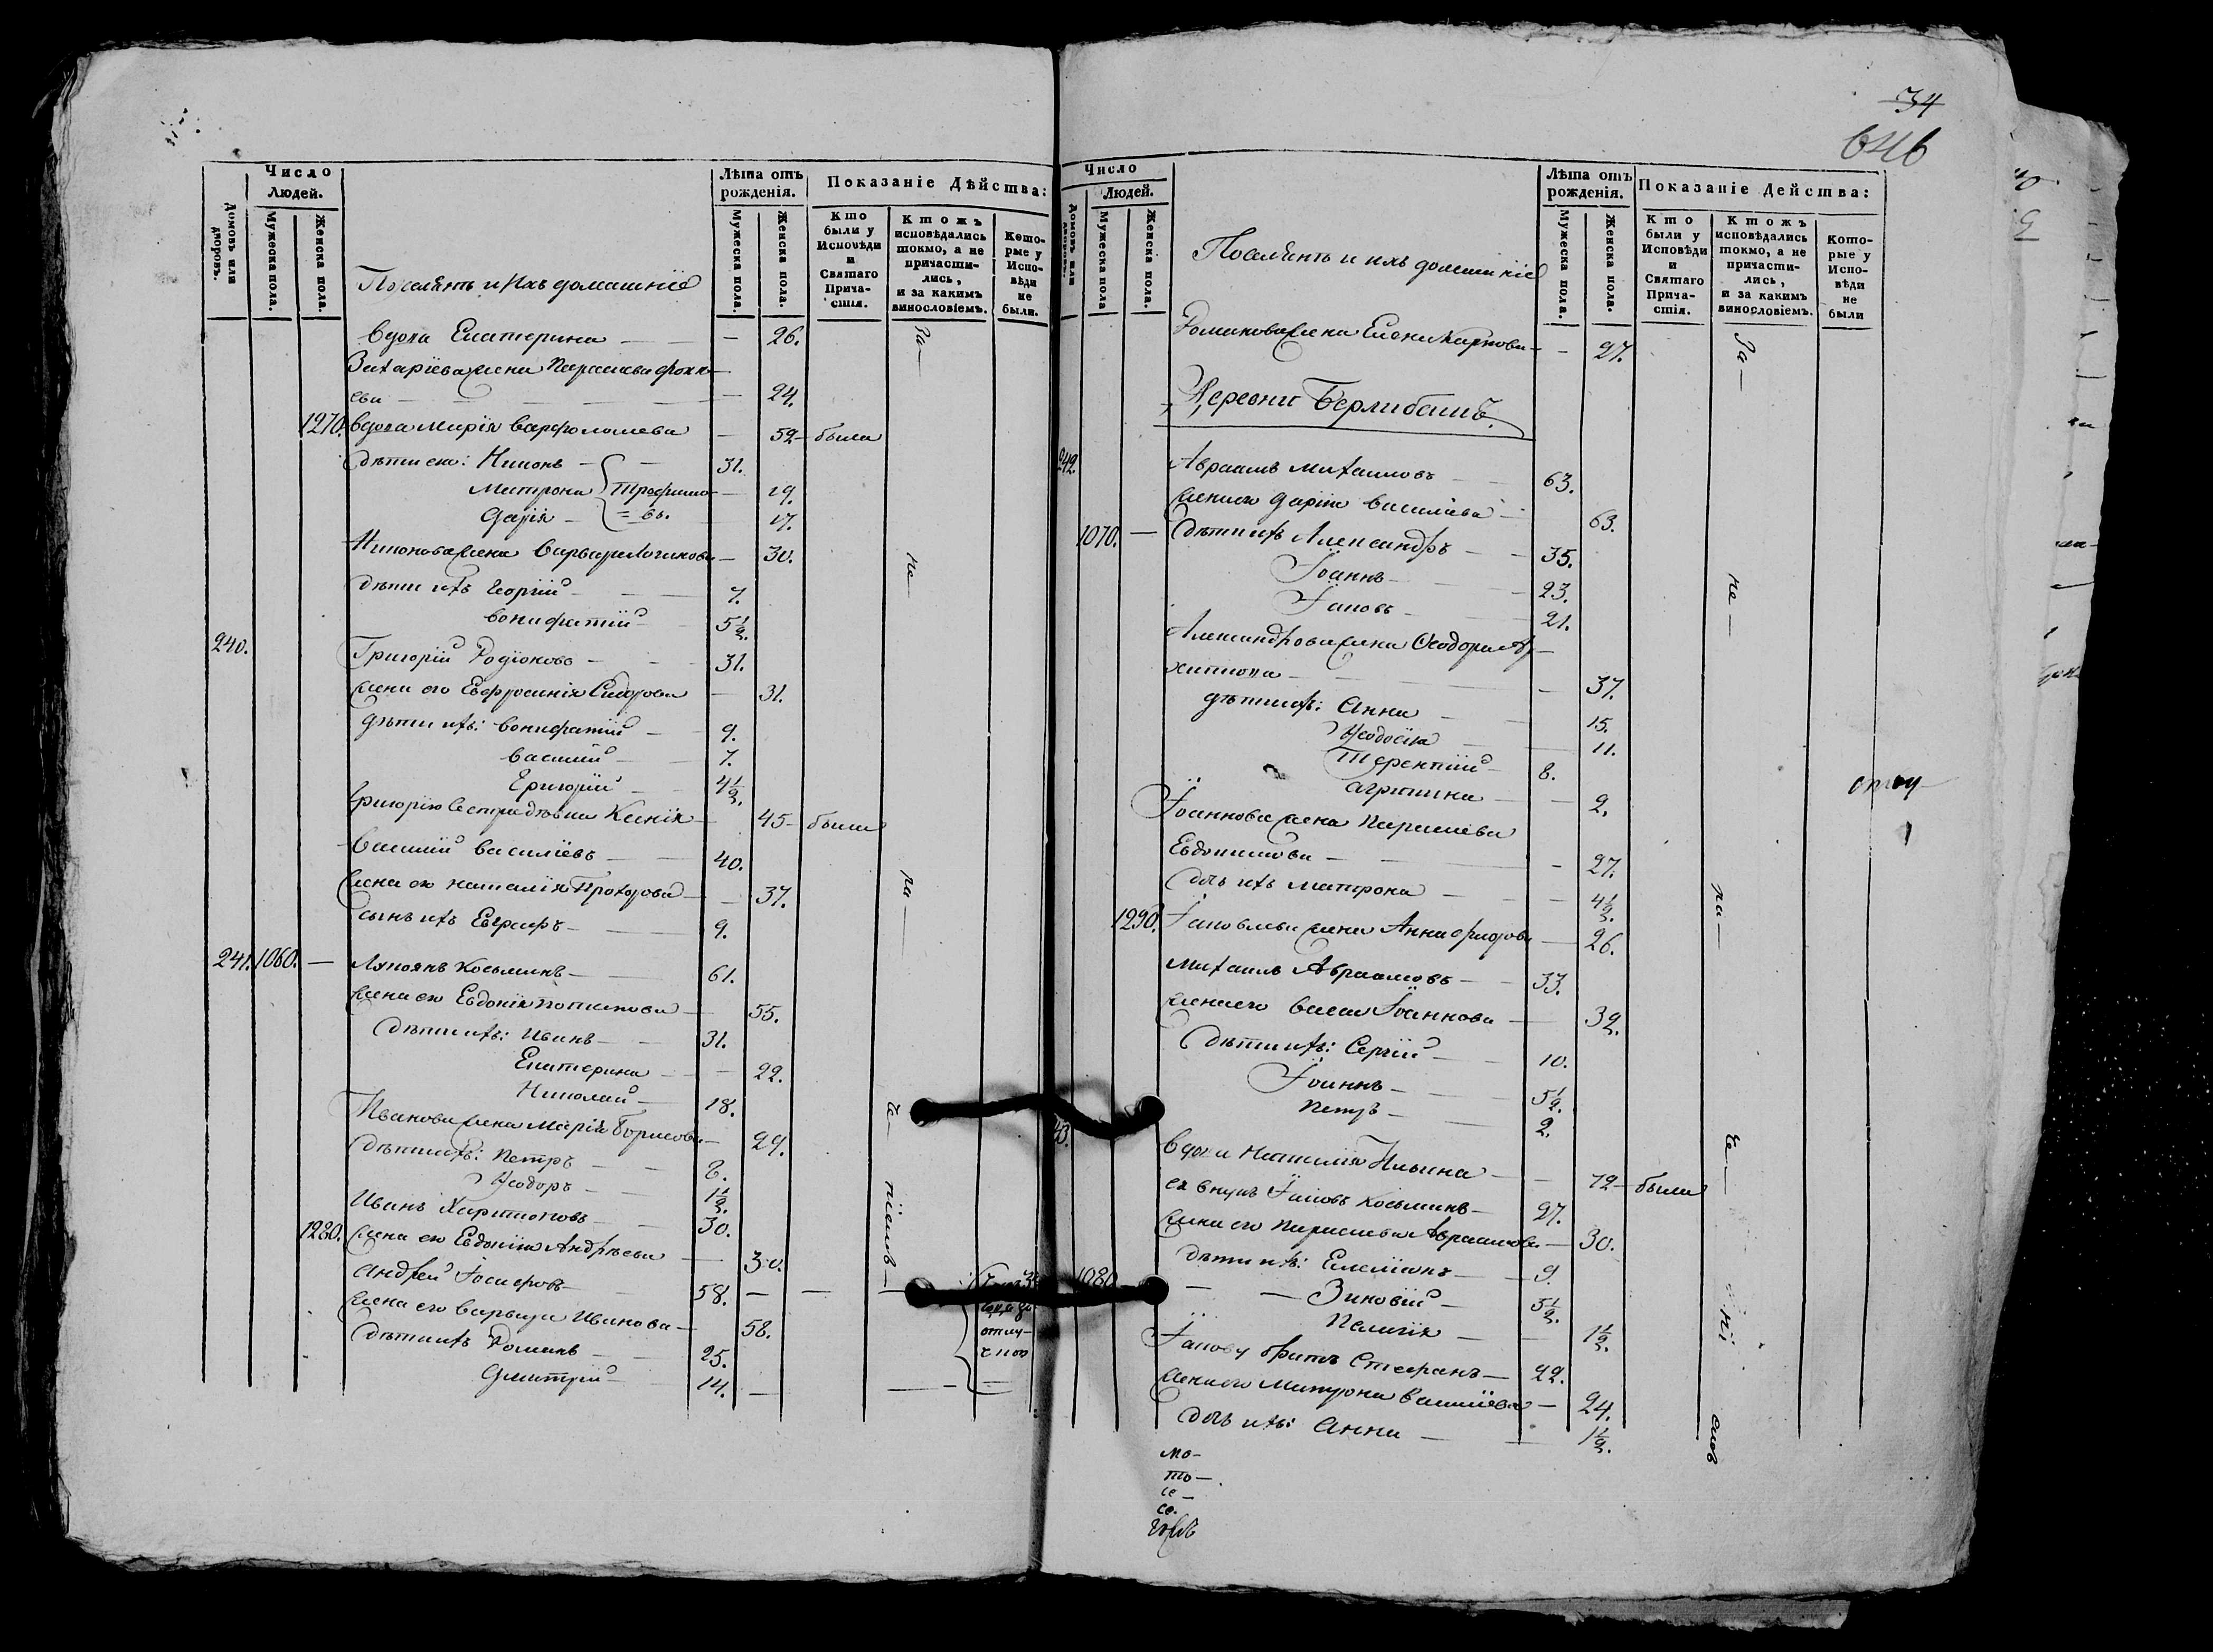 Число
Людей.
Домовъ или дворовъ.
Мужеска пола.
Женска пола.
Поселянъ и ихъ домашніе
Лѣта отъ рожденія.
Мужеска пола.
Женска пола.
Показаніе Дѣйства:
Кто были у Исповѣди и Святаго Прича-стія.
Ктожъ исповѣдались токмо, а не причасти-лись, и за какимъ винословіемъ.
Кото-рые у Испо-вѣди не были.
вдова Екатерина — — 26.
Захаріева жена Параскева Фоки-
ева — — 24.
1270. вдова Марія Варфоломеева — 52 — были
Дѣти ея: Никонъ — 31.
Матрона Трофимо- — 19.
Дарія — = вы. 17.
Никонова жена Варвара Логинова — 30.
Дѣти ихъ Георгій — 7.
Вонифатій 5 1/2.
240. Григорій Родіоновъ — 31.
Жена его Евфросинія Сидорова — 31.
Дѣти ихъ: Вонифатій — 9.
Василій — 7.
Григорій — 4 1/2.
Григорію сестра дѣвка Ксенія — 45 — были
Василій Василіевъ — 40.
Жена его Наталія Прохорова — 37.
Сынъ ихъ Евграфъ — 9.
241. 1060. — Лукоянъ Косьминъ — 61.
Жена его Евдокія Потапова — 55.
Дѣти ихъ: Иванъ — 31.
Екатерина — 22.
Николай — 18.
Иванова жена Марія Борисова — 29.
Дѣти ихъ: Петръ — 8.
Ѳеодоръ — 1 1/2.
Иванъ Харитоновъ — 30.
1280. Жена его Евдокія Андрѣева — 30.
Андрей Іосифовъ — 58. — — —
Жена его Варвара Иванова — 58.
Дѣти ихъ Романъ — 25.
Дмитрій — 14. —
За — не — ра — че — ніемъ —
отлу-
чко
34
646
Число
Людей.
Домовъ или
Мужеска пола
Женска пола.
Поселянъ и ихъ домашніе
Лѣта отъ рожденія.
Мужеска пола.
Женска пола.
Показаніе Дейсmва:
Кто были у Исповѣди и Святаго Прича-стія.
Ктожъ исповѣдались токмо, а не причасти-лись, и за какимъ винословіемъ.
Кото-рые у Испо-вѣди не были
Романова жена Елена Карпова — — 27.
Деревни Берлибашъ.
242. Авраамъ Михаиловъ — 63.
Жена его Дарія Василіева — 63.
1070. — Дѣти ихъ Александръ — 35.
Іоаннъ — 23.
Іаковъ — 21.
Александрова жена Ѳеодора Ар-
хипова — — 37.
Дѣти ихъ: Анна — 15.
Ѳеодосія — 11.
Терентій — 8.
Агрипина — — 2.
Іоаннова жена Параскева
Евдокимова — — 27.
Дочь ихъ Матрона — — 4 1/2.
1290. Іаковлева жена Анна — 26.
Михаилъ Авраамовъ — 33.
Жена его Васса Іоаннова — 32.
Дѣти ихъ: Сергій — 10.
Іоаннъ — 5 1/2.
Петръ — 2.
43. Вдова Наталія Ильина — 72 — были
ея внукъ Іаковъ Косьминъ — 27.
Жена его Параскева Авраамова — 30.
Дѣти ихъ: Емеліанъ — 9.
1080 — — Зиновій — 3 1/2.
Пелагія — 1 1/2.
Іакову братъ Стефанъ — 22.
Жена его Матрона Василіева — 24.
Дочь ихъ: Анна — 1 1/2.
За — не — ра — че — ні емъ
отлу-
1